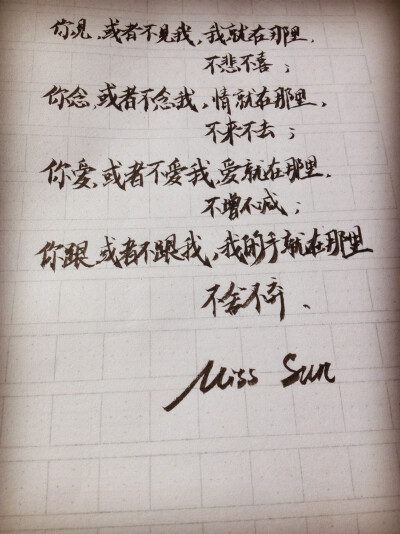 你见，或者不见我，我就在那里，
不悲不喜；
你念，或者不念我，情就在那里，
不来不去；
你爱，或者不爱我，爱就在那里，
不增不减；
你跟，或者不跟我，我的手就在那里
不舍不弃、
Miss Sun